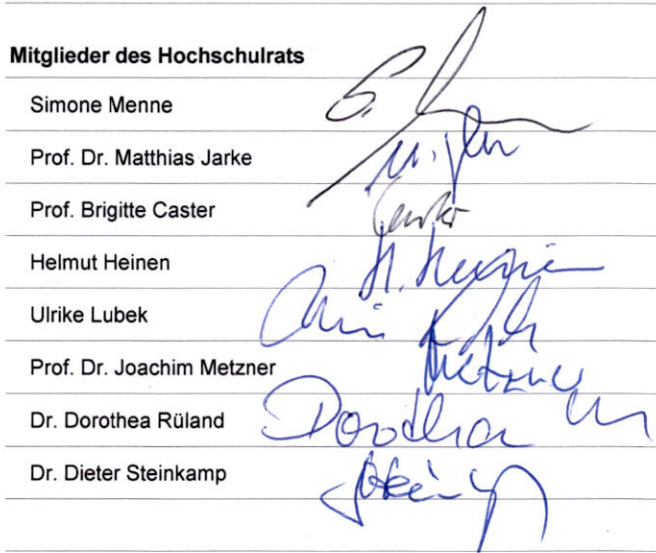 Mitglieder des Hochschulrats
Simone Menne
Prof. Dr. Matthias Jarke
Prof. Brigitte Caster
Caster
Helmut Heinen
H. Heinen
Ulrike Lubek
Prof. Dr. Joachim Metzner
Metzner
Dr. Dorothea Rüland
Dorothea
Dr. Dieter Steinkamp